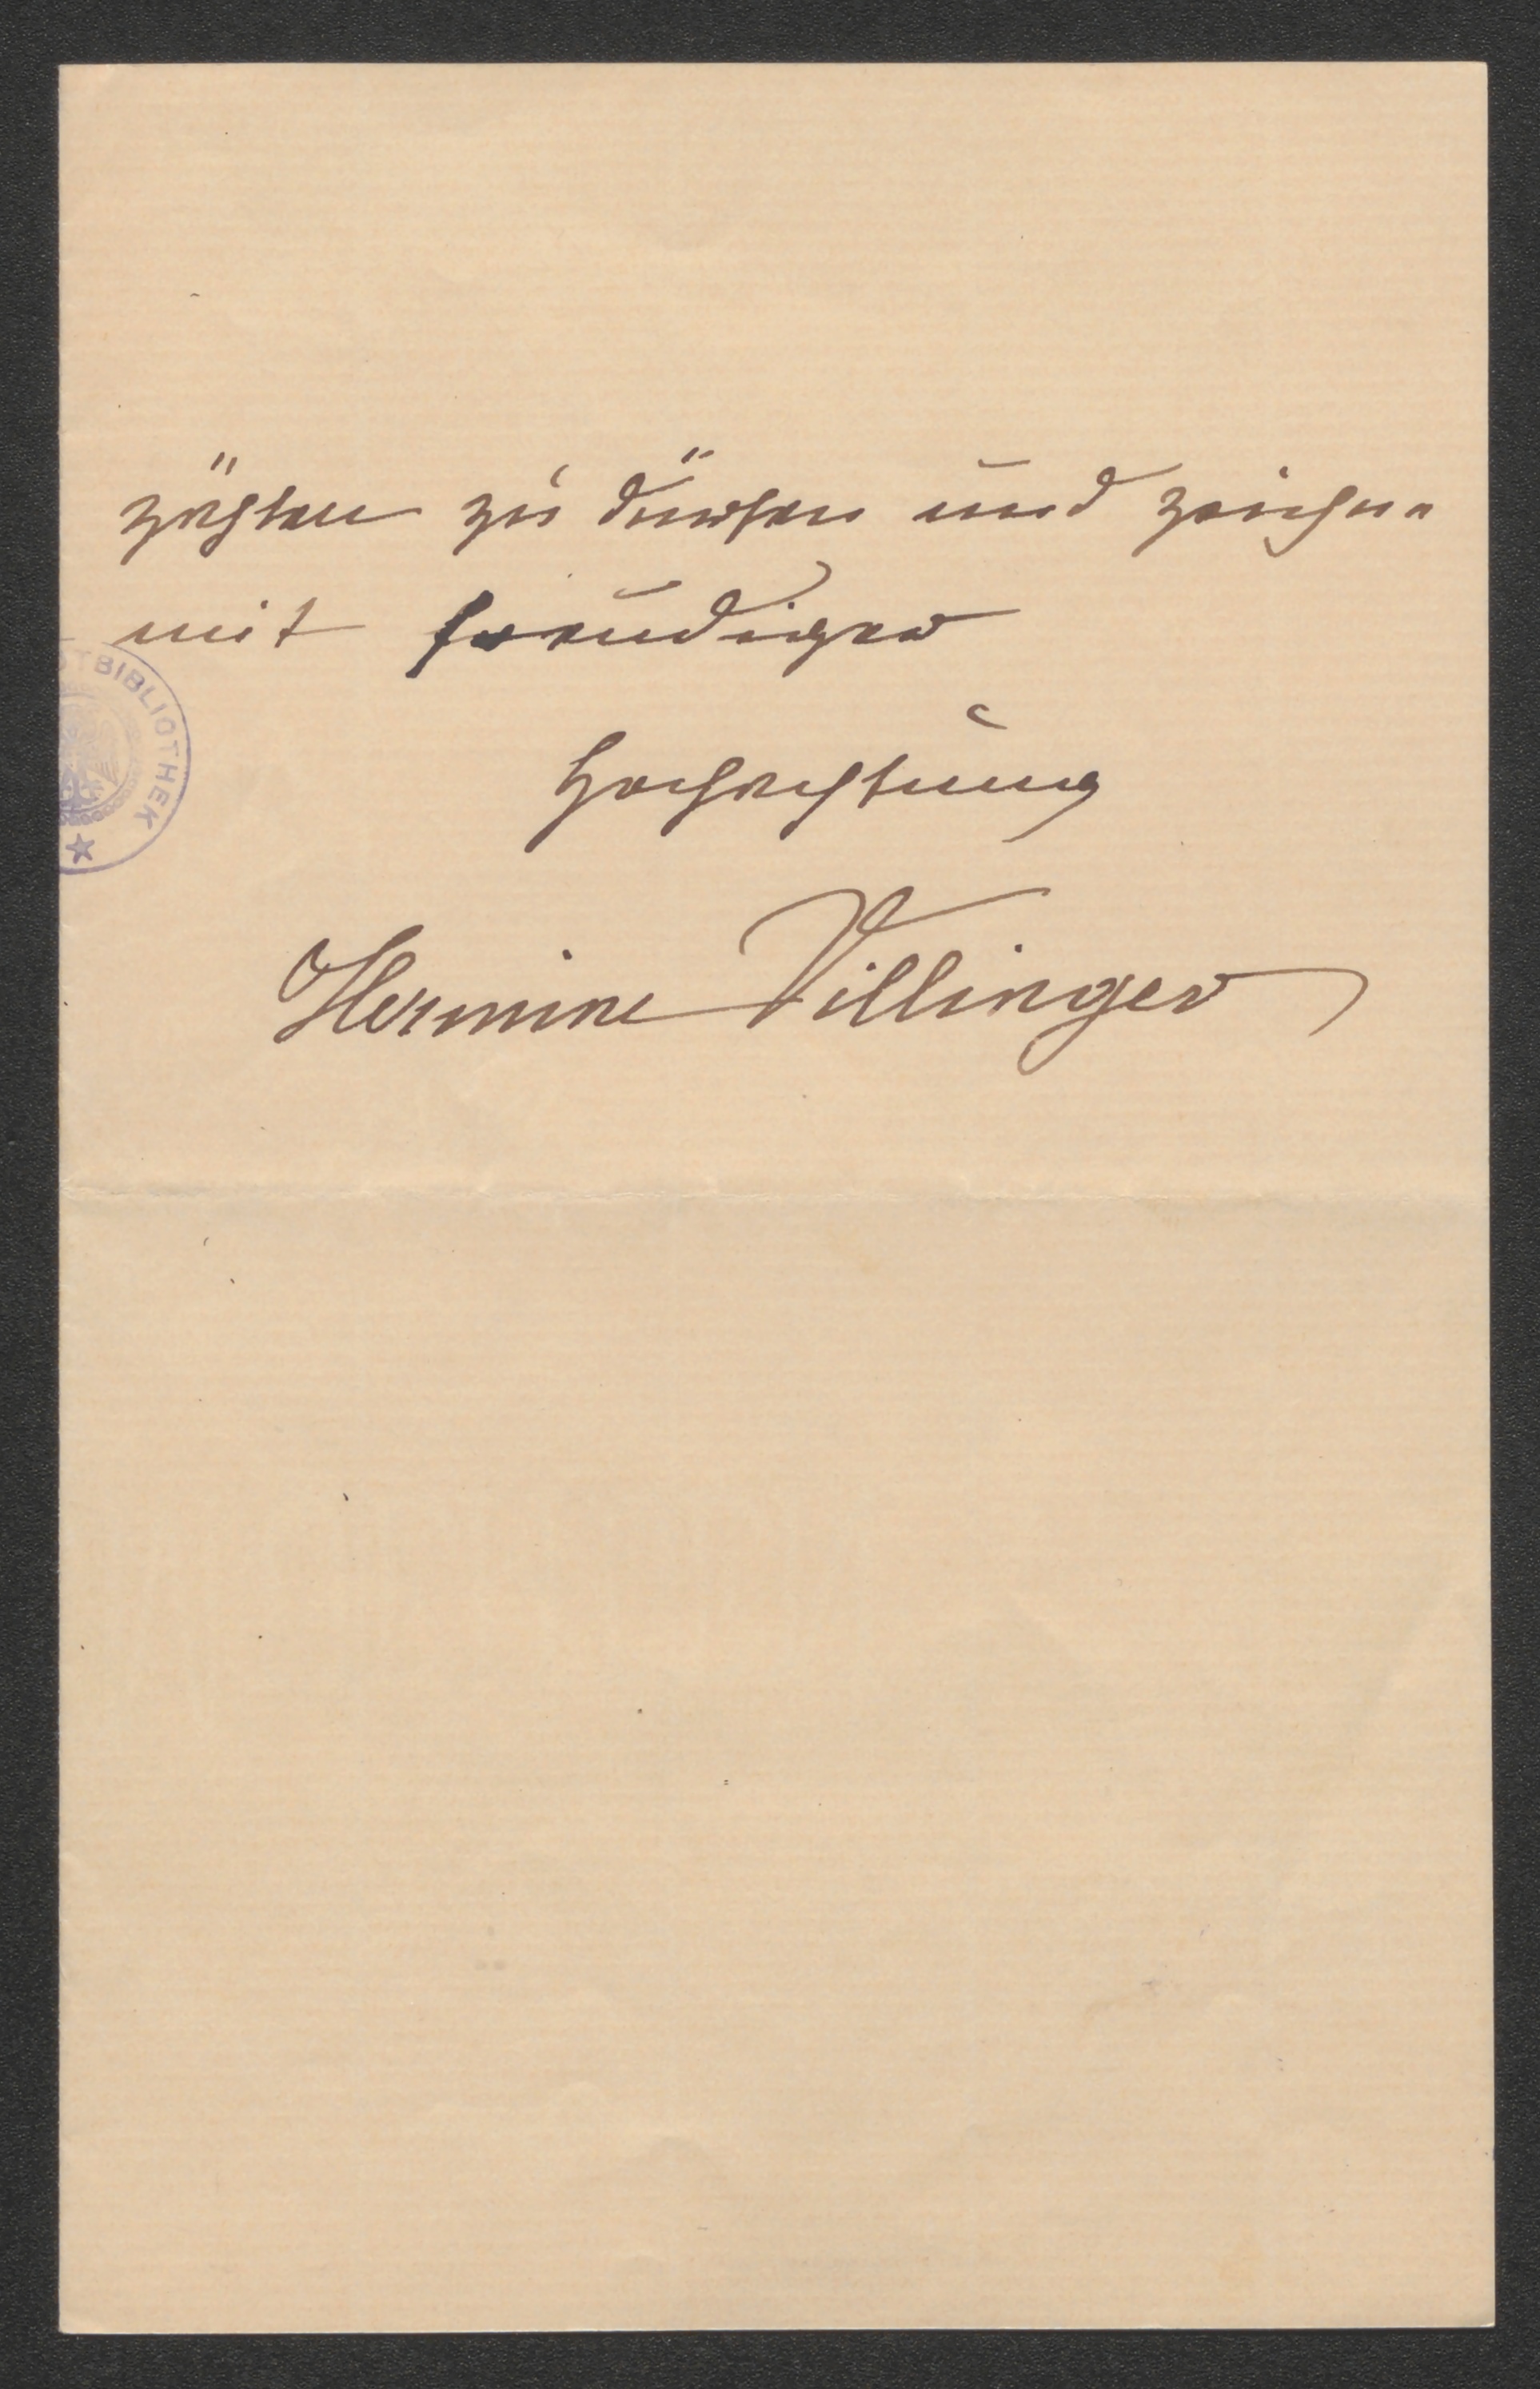 zählen zu dürfen und zeichne
mit freudiger
TBIBLIOTHEK
Hochachtung
Hermine Villinger